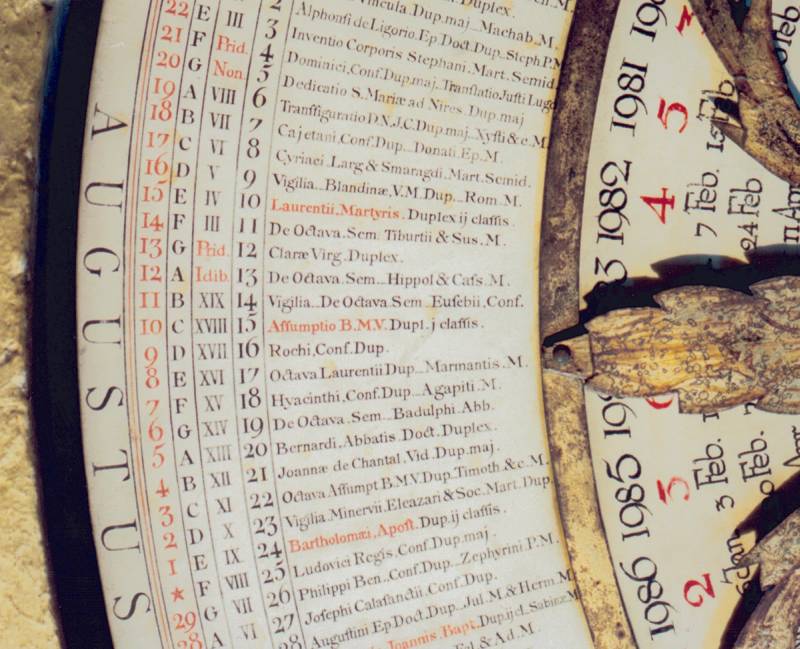 AUGUSTUS
22 E III 2
21 F Prid. 3 Alphonsi de Ligorio Ep Doct. Dup. Steph P.M
20 G Non. 4 Inventio Corporis Stephani. Mart. Semid.
19 A VIII 5 Dominici, Conf. Dup. maj. Translatio Justi Lugd
18 B VII 6 Dedicatio S. Mariæ ad Nives. Dup. maj
17 C VI 7 Transfiguratio D.N.J.C. Dup. maj. Xysti & c. M.
16 D V 8 Cajetani. Conf. Dup. Donati. Ep. M.
15 E IV 9 Cyriaci. Larg & Smaragdi. Mart. Semid.
14 F III 10 Vigilia. Blandinæ. V. M. Dup. Rom. M.
Laurentii, Martyris. Duplex ij classis.
13 G Prid. 11 De Octava. Sem. Tiburtii & Sus. M.
12 A Idib. 12 Claræ Virg. Duplex.
11 B XIX 13 De Octava. Sem. Hippol & Cass. M.
10 C XVIII 14 Vigilia. De Octava. Sem. Eusebii, Conf.
9 D XVII 15 Assumptio B.M.V. Dupl. j classis.
8 E XVI 16 Rochi, Conf. Dup.
7 F XV 17 Octava Laurentii Dup. Marmantis. M.
6 G XIV 18 Hyacinthi, Conf. Dup. Agapiti. M.
5 A XIII 19 De Octava. Sem. Badulphi. Abb.
4 B XII 20 Bernardi. Abbatis. Doct. Duplex.
3 C XI 21 Joannæ de Chantal. Vid. Dup. maj.
2 D X 22 Octava Assumpt B.M.V. Dup. Timoth. & c. M.
1 E IX 23 Vigilia. Minervii. Eleazari & Soc. Mart. Dup.
* F VIII 24 Bartholomæi, Apost. Dup. ij classis.
29 G VII 25 Ludovici Regis, Conf. Dup. maj.
28 A VI 26 Philippi Ben. Conf. Dup. Zephyrini. P.M.
27 Josephi Calasanctii, Conf. Dup.
28 Augustini Ep Doct. Dup. Jul. M. & Herm. M
Joannis Bapt. Dup. ij cl. Sabinæ M
& Ad. M.
1981 5
1982 4 7 Feb. 24 Feb.
1985 3 3 Feb.
1986 2